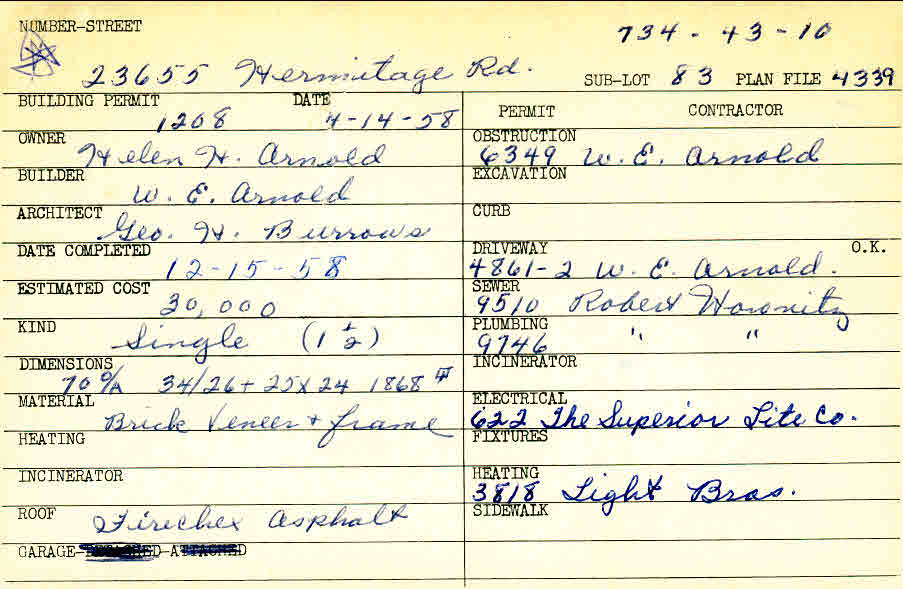 NUMBER-STREET
734-43-10
23655 Hermitage Rd.
SUB-LOT 83 PLAN FILE 4339
BUILDING PERMIT DATE
1208 4-14-58
OWNER
Helen H. Arnold
BUILDER
W. E. Arnold
ARCHITECT
Geo. H. Burrows
DATE COMPLETED
12-15-58
ESTIMATED COST
30,000
KIND
Single (1 1/2)
DIMENSIONS
70 O/A 34/26 + 25 X 24 1868
MATERIAL
Brick Veneer + frame
HEATING
INCINERATOR
ROOF Firechex Asphalt
GARAGE-DETACHED-ATTACHED
PERMIT CONTRACTOR
OBSTRUCTION
6349 W. E. Arnold
EXCAVATION
CURB
DRIVEWAY O.K.
4861-2 W. E. Arnold.
SEWER
9510 Robert Horonitz
PLUMBING
9746 " "
INCINERATOR
ELECTRICAL
622 The Superior Lite Co.
FIXTURES
HEATING
3818 Light Bros.
SIDEWALK